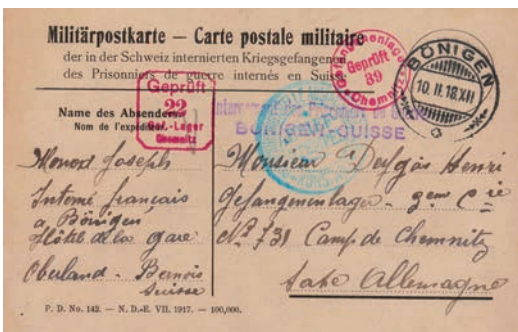 Militärpostkarte – Carte postale militaire
der in der Schweiz internierten Kriegsgefangenen
des Prisonniers de guerre internés en Suisse
Gefangenenlager
Geprüft
89
Chemnitz
BÖNIGEN
10. II. 18. XII
Geprüft
22
Gef.-Lager
Chemnitz
Name des Absenders
Nom de l'expéditeur
BÖNIGEN-SUISSE
Monod Joseph
Interné français
à Bönigen
Hôtel de la gare
Oberland - Bernois
Suisse
Monsieur Henri
Gefangenenlager - 2em Cie
No 731 Camp de Chemnitz
Saxe Allemagne
P. D. No. 142. — N. D.-E. VII. 1917. — 100,000.